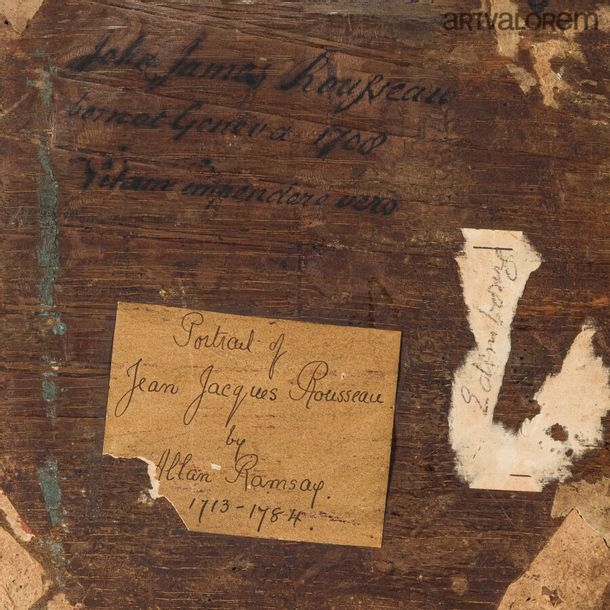 ARTVALOREM
John James Rousseau
born at Geneva 1708
Vitam impendere vero
Edimbourg
Portrait of
Jean Jacques Rousseau
by
Allan Ramsay.
1713-1784.